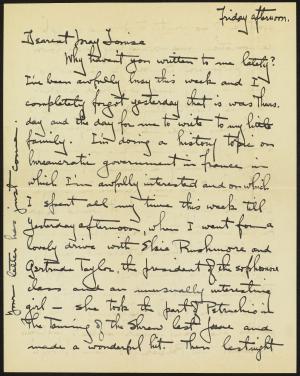 Friday afternoon.
Dearest May Louise
Why haven't you written to me lately?
I've been awfully busy this week and I
completely forgot yesterday that is was Thurs-
day and the day for me to write to my little
family. I'm doing a history topic on
bureaucratic government in France in
which I'm awfully interested and on which
I spent all my time this week till
yesterday afternoon, when I went for a
lovely drive with Elsie Rushmore and
Gertrude Taylor, the president of the sophomore
class and an unusually interesting
girl – she took the part of Petruchio in
the Taming of the Shrew last June and
made a wonderful hit. Then last night
Your letter has just come